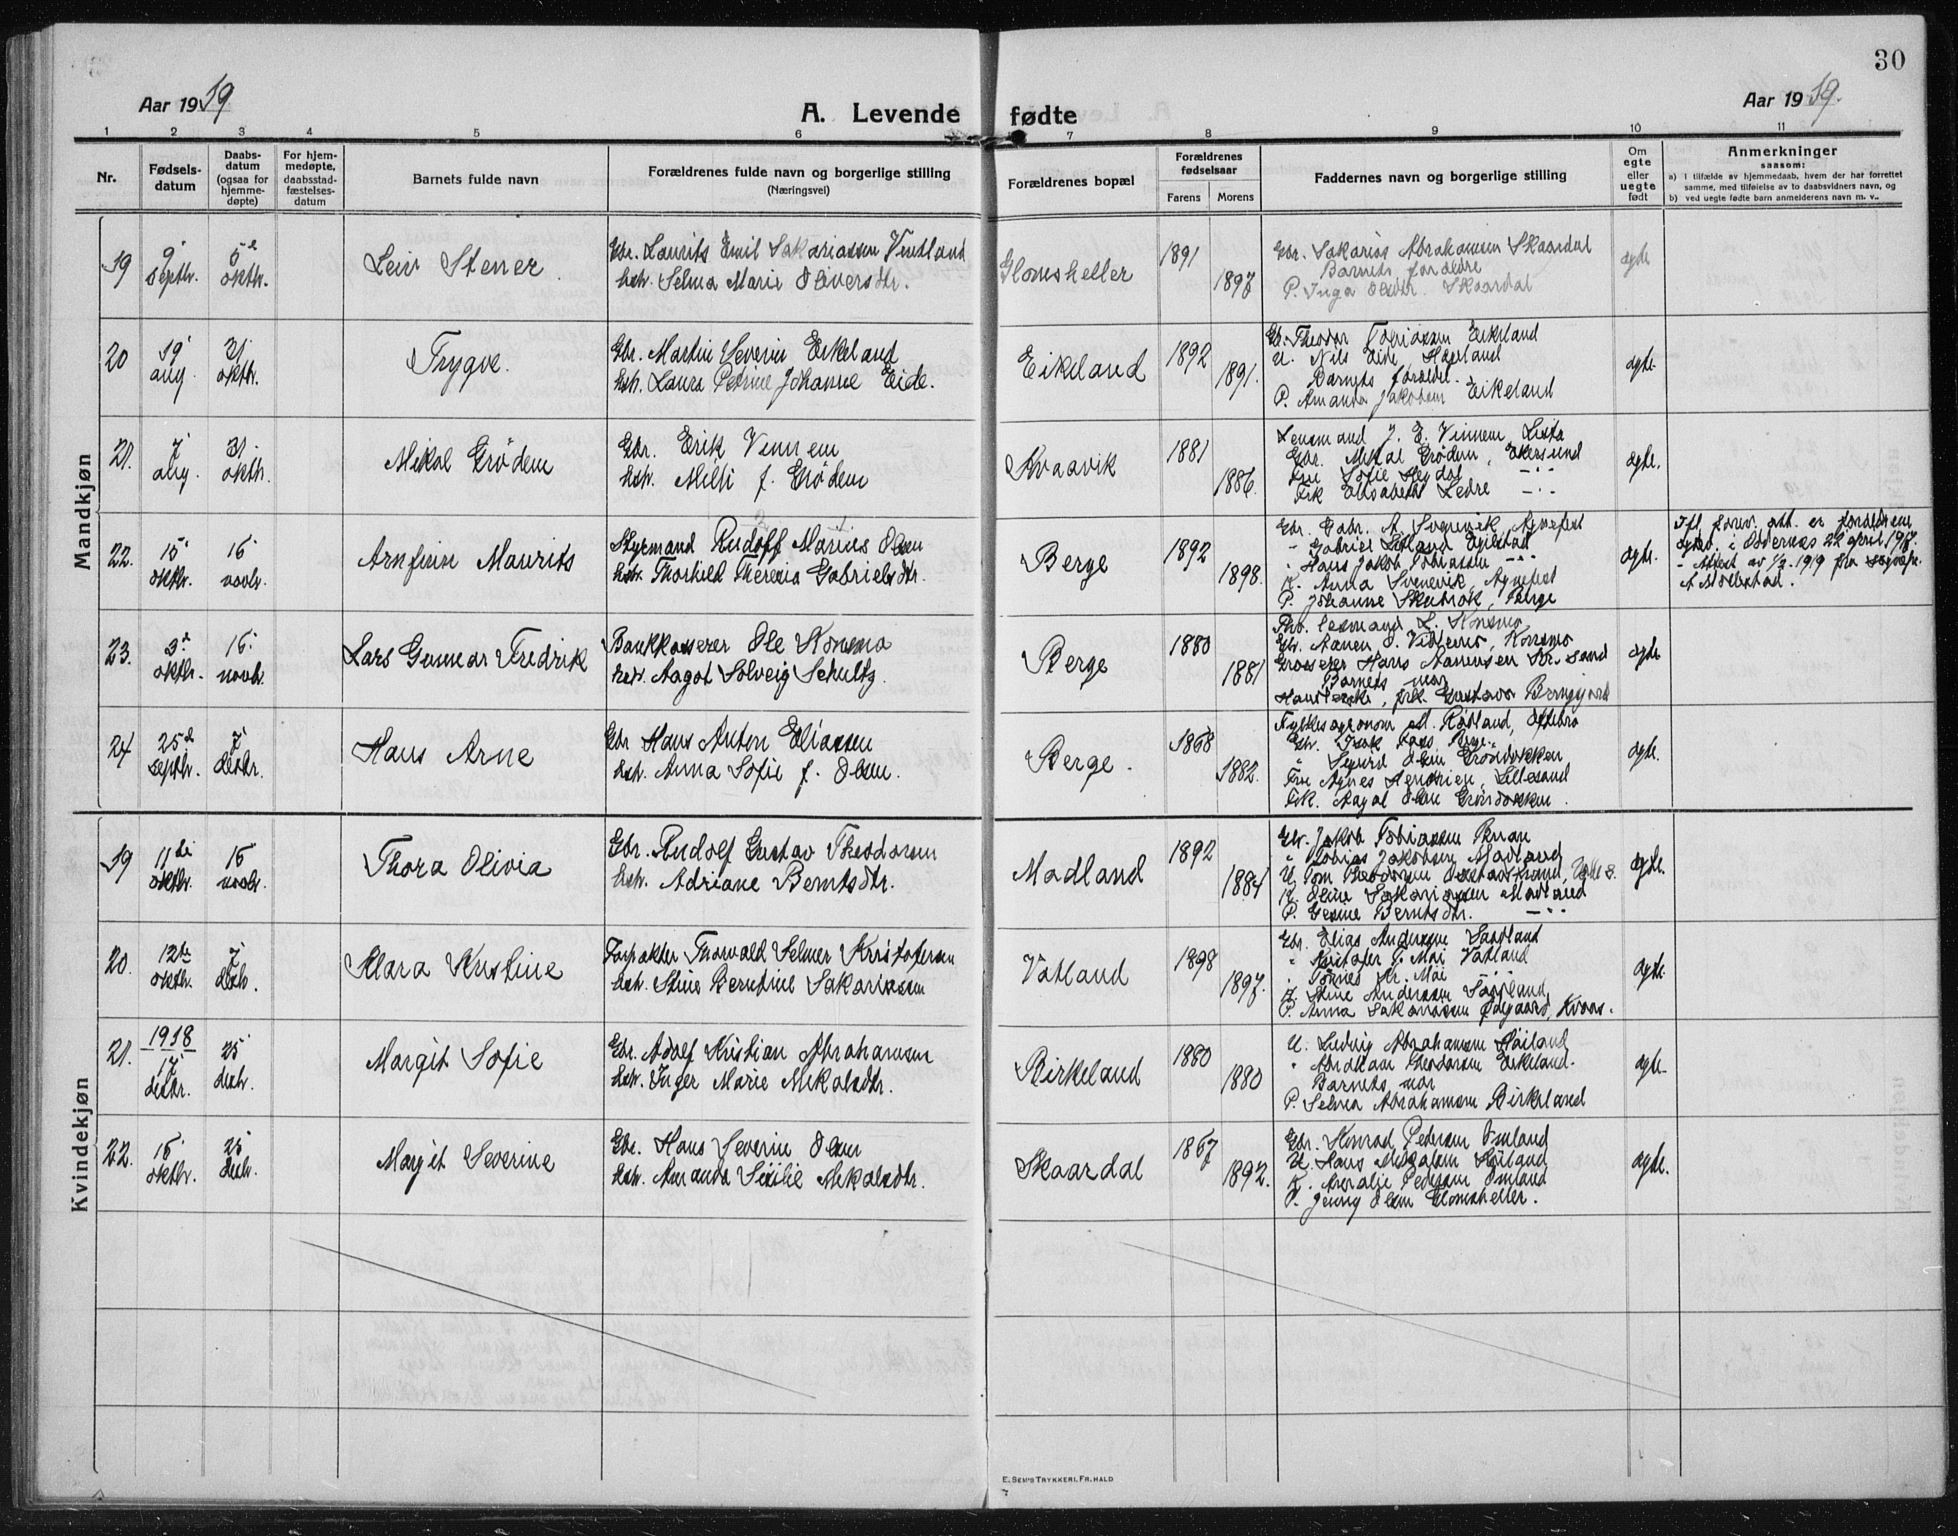 30
Aar 1919
A. Levende fødte
Aar 1919.
1 2 3 4 5 6 7 8 9 10 11
Nr.
Fødsels-
datum
Daabs-
datum
(ogsaa for
hjemme-
døpte)
For hjem-
medøpte,
daabsstad-
fæstelses-
datum
Barnets fulde navn
Forældrenes fulde navn og borgerlige stilling
(Næringsvei)
Forældrenes bopæl
Forældrenes
fødselsaar
Farens Morens
Faddernes navn og borgerlige stilling
Om
egte
eller
uegte
født
Anmerkninger
saasom:
a) i tilfælde av hjemmedaab, hvem der har forrettet
samme, med tilføielse av to daabsvidners navn, og
b) ved uegte fødte barn anmelderens navn m. v..
Mandkjøn
19
9
septbr.
5
oktbr.
Leiv Stener
Gbr. Laurits Emil Sakariassen Ventland
hstr. Selma Marie Oliversdtr.
Glomsheller
1891
1897
Gbr. Sakarias Abrahamsen Skaardal
Barnets foreldre
P. Inga Olsdtr. Skaardal
egte
20
19
aug.
31
oktbr.
Trygve.
Gbr. Martin Severin Eikeland
hstr. Laura Petrine Johanne Eide.
Eikeland
1892
1891.
Gbr. Theodor Tobiassen Eikeland
U. Nils Eide,
Barnets foreldre.
P. Amanda Jakobsen Eikeland
egte.
21.
7
aug.
31
oktbr.
Mikal Grødem
Gbr. Erik Vinnem
hstr. Milli f. Grødem
Kvaavik
1881
1886.
Lensmand J. E. Vinnem, Lista
Gbr. Mikal Grødem, Ekersund
Fru Sofie
Frk Elisabeth Ledre
egte.
22.
15
oktbr.
16
novbr.
Arnfinn Maurits
Styrmand Rudolf Marius Olsen
hstr. Thorhild Theresia Gabrielsdtr.
Berge
1892
1898.
Gbr. Gabr. A. Svenevik, Agnefest
" Gabriel
" Hans Jakob Tobiassen
K. Anna Svenevik, Agnefest
P. Johanne Skubrok, Berge
egte.
Ifl. att. er foreldrene
i Oddernes 22 april 1917.
- Attest av 1919 fra
A. Møllestad.
23.
3
oktbr.
16
novbr.
Lars Gunnar Fredrik
Bankkasserer Ole Konsmo
hstr. Aagot Solveig Schultz.
Berge
1880
1881
L. Konsmo
Gbr. Aanen O. Konsmo
Grosserer Hans Aanensen Kr. sand
Barnets mor
frk. Gustava
egte
24
25
septbr.
7
desbr.
Hans Arne
Gbr Hans Anton Eliassen
hstr. Anna Sofie f. Olsen.
Berge.
1868
1882.
Fylkesagronom Rødland,
Gbr. Isak Berge
" Sigurd Olsen Grøndokken
Fru Agnes Lillesand
Frk. Aagot Olsen Grøndokken.
egte.
Kvindekjøn
19
11
oktbr.
16
novbr.
Thora Olivia
Gbr. Rudolf Gustav Theodorsen
hstr. Adriane Berntsdtr.
Madland
1892
1884
Gbr. Jakob Tobiassen
" Tobias Jakobsen Madland
U. Tom Theodorsen
K. Oline Sakariassen Madland
P. Gesine Berntsdtr.
egte.
20.
12te
oktbr.
7
desbr.
Klara Kristine
Forpakter Thorvald Selmer Kristofersen
hstr. Stine Berntine Sakariassen
Vatland
1898
1897.
Gbr. Elias Andersen
" Kristofer T. Moi Vatland
" Tønnes Kr. Moi
K. Stine Andersen
P. Anna Sakariassen Ødegaard, Kvaas.
egte.
21.
1918
17
desbr.
25
desbr.
Margit Sofie
Gbr. Adolf Kristian Abrahamsen
hstr. Inger Marie Mekalsdtr.
Birkeland
1880
1880
U. Ludvig Abrahamsen Høiland
" Abraham Theodorsen Eikeland.
Barnets mor
P. Selma Abrahamsen Birkeland
egte
22.
16
oktbr.
25
desbr.
Margit Severine
Gbr. Hans Severin Olsen
hstr. Amanda Sesilie Mekalsdtr.
Skaardal
1867
1892.
Gbr. Konrad Pedersen Omland
U. Hans Mekalsen Høiland
K. Amalie Pedersen Omland
P. Jenny Olsen Glomsheller.
egte.
E. SEM'S TRYKKERI, FR.HALD